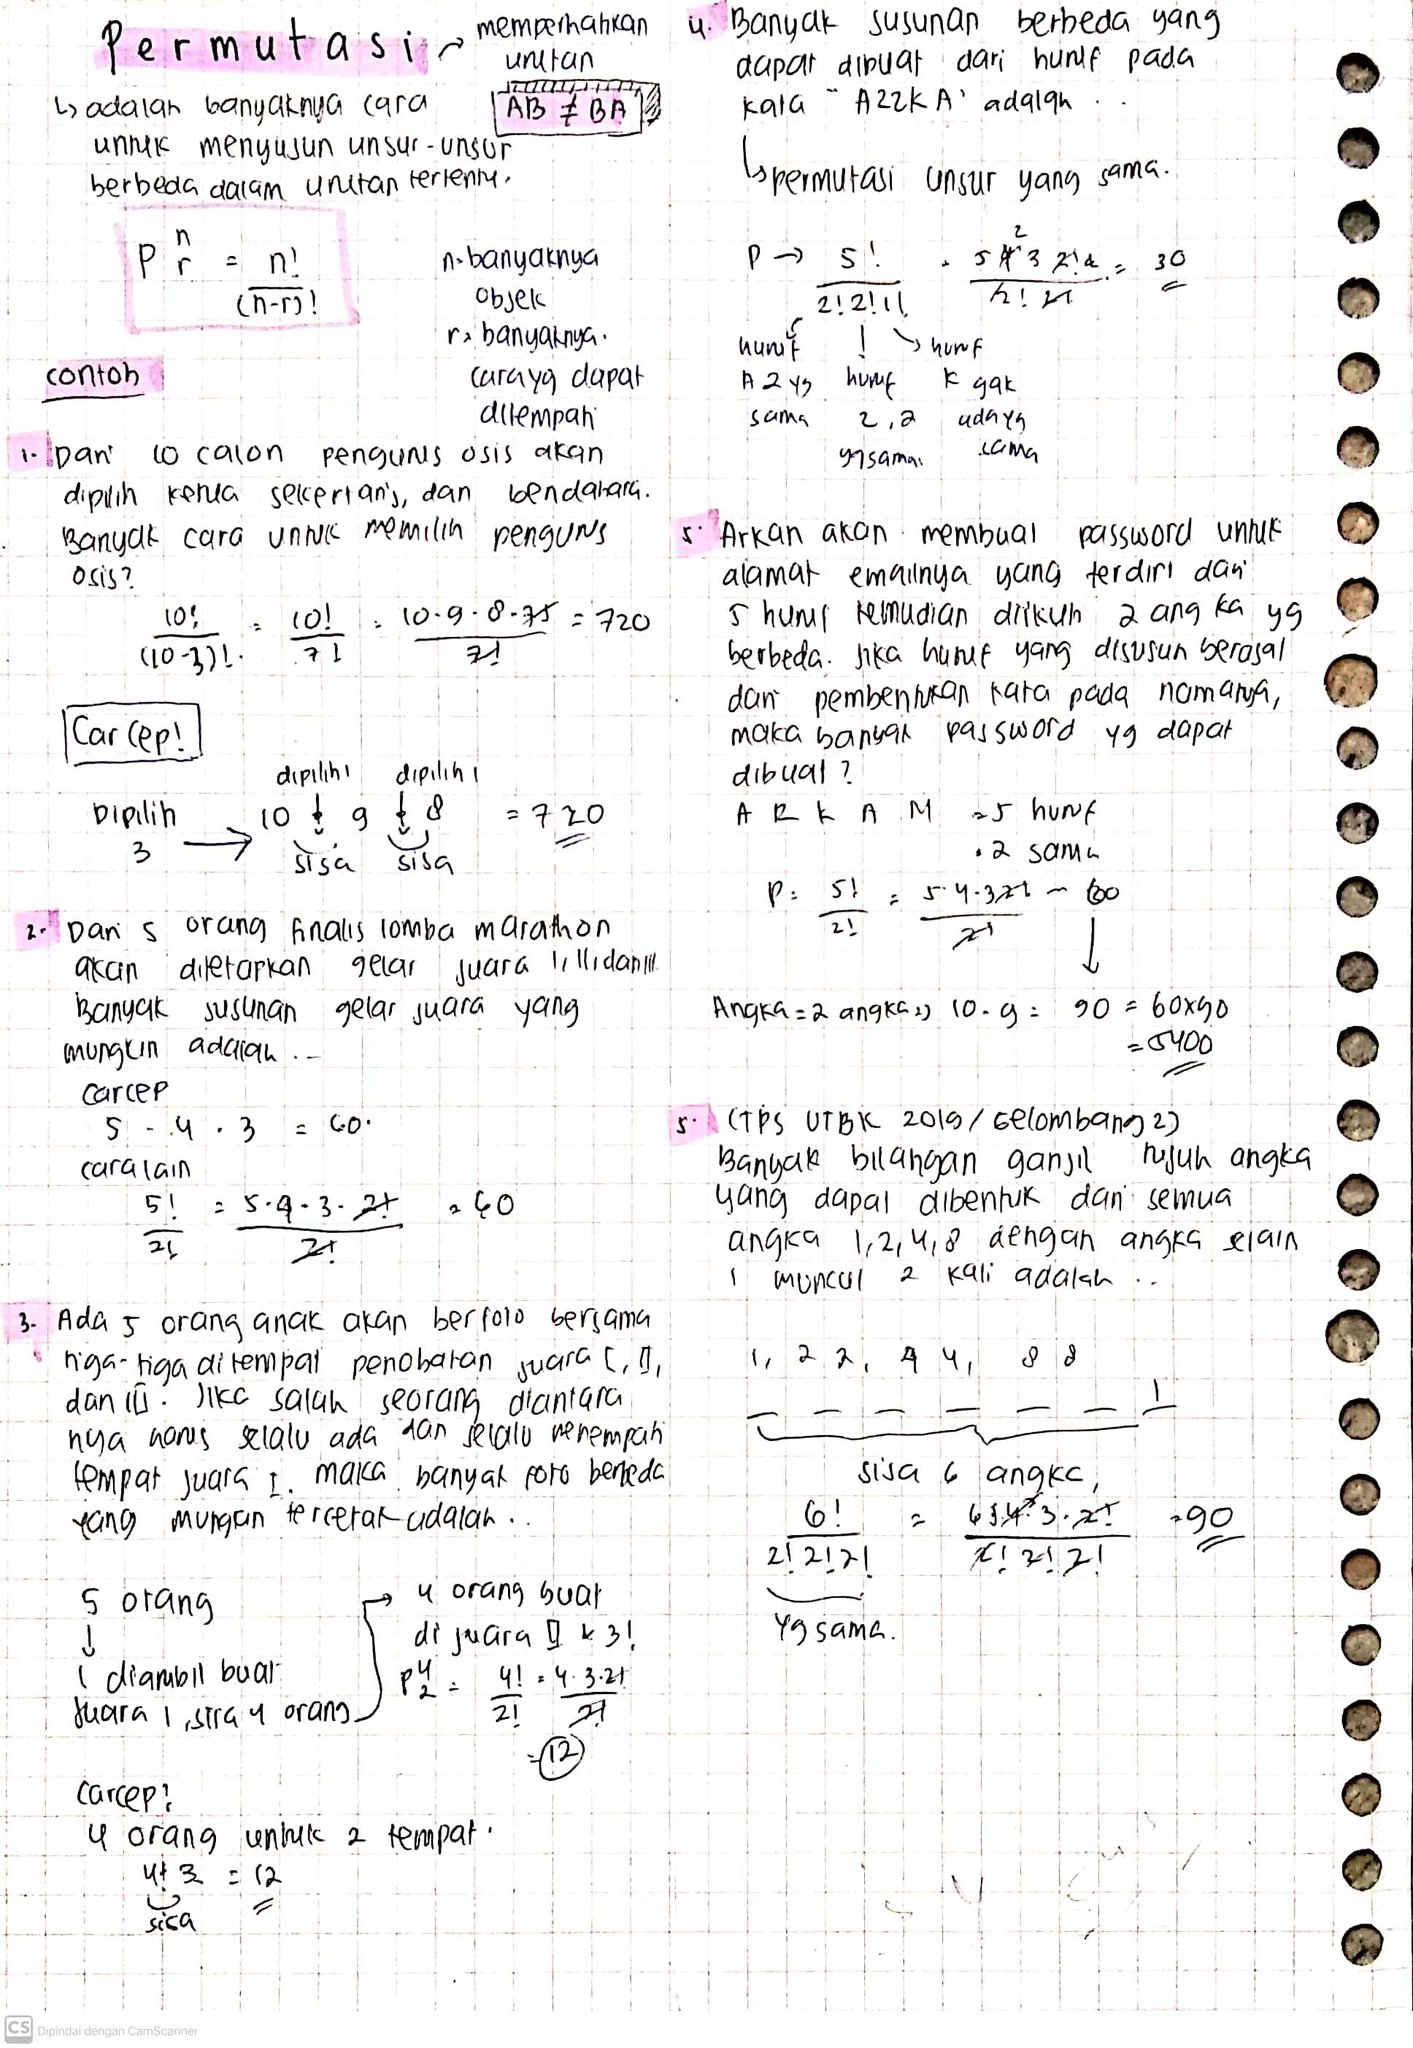 Permutasi
memperhatikan
urutan
AB ≠ BA
↳ adalah banyaknya cara
untuk menyusun unsur-unsur
berbeda dalam urutan tertentu.
P n r = n! / (n-r)!
n = banyaknya
objek
r = banyaknya
cara yg dapat
ditempati
contoh
1. Dari 10 calon pengurus osis akan
dipilih ketua sekertaris, dan bendahara.
Banyak cara untuk memilih pengurus
osis?
10! / (10-3)! = 10! / 7! = 10·9·8·7! / 7! = 720
Carcep!
dipilih 1 dipilih 1
Dipilih 3 → 10 ↓ 9 ↓ 8 = 720
sisa sisa
2. Dari 5 orang finalis lomba marathon
akan ditetapkan gelar juara I, II, dan III.
Banyak susunan gelar juara yang
mungkin adalah ...
carcep
5 . 4 . 3 = 60.
cara lain
5! / 2! = 5·4·3·2! / 2! = 60
3. Ada 5 orang anak akan berfoto bersama
tiga-tiga ditempat penobatan juara I, II,
dan III. Jika salah seorang diantara
nya harus selalu ada dan selalu menempati
tempat juara I. maka banyak foto berbeda
yang mungkin tercetak adalah ..
5 orang
↓
1 diambil buat
Juara 1, sisa 4 orang
→ 4 orang buat
di juara II & 3!
P 4 2 = 4! / 2! = 4·3·2! / 2!
= 12
carcep!
4 orang untuk 2 tempat.
4 ↓ 3 = 12
sisa
4. Banyak susunan berbeda yang
dapat dibuat dari huruf pada
kata "AZZKA" adalah ..
↳ permutasi unsur yang sama.
P → 5! / 2!2!1! = 5 4 3 2! / 2! 2! = 30
huruf ! huruf
A 2 yg huruf K gak
sama 2, 2 ada yg
yg sama sama
5. Arkan akan membuat password untuk
alamat emailnya yang terdiri dari
5 huruf kemudian diikuti 2 angka yg
berbeda. Jika huruf yang disusun berasal
dari pembentukan kata pada namanya,
maka banyak password yg dapat
dibuat?
A R K A N = 5 huruf
. 2 sama
P = 5! / 2! = 5·4·3·2! / 2! = 60
Angka = 2 angka => 10 . 9 = 90 = 60x90
= 5400
5. (TPS UTBK 2019 / Gelombang 2)
Banyak bilangan ganjil tujuh angka
yang dapat dibentuk dari semua
angka 1, 2, 4, 8 dengan angka selain
1 muncul 2 kali adalah ..
1, 2 2, 4 4, 8 8
_ _ _ _ _ _ 1
sisa 6 angka,
6! / 2! 2! 2! = 6 5 4 3 · 2! / 2! 2! 2! = 90
yg sama.
CS Dipindai dengan CamScanner